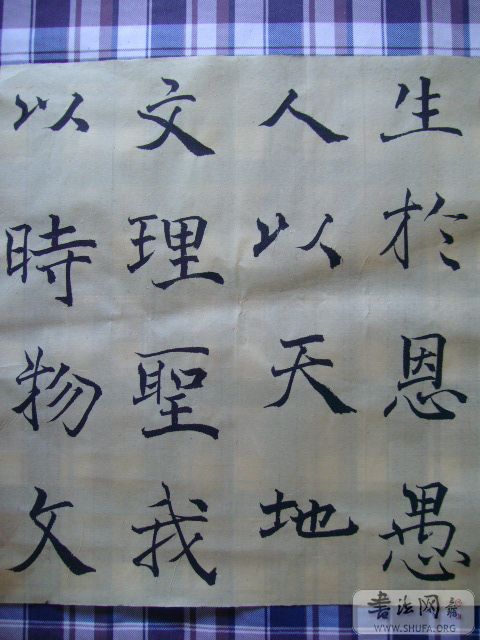 生於恩愚
人以天地
文理聖我
以時物文
書法网
WWW.SHUFA.ORG